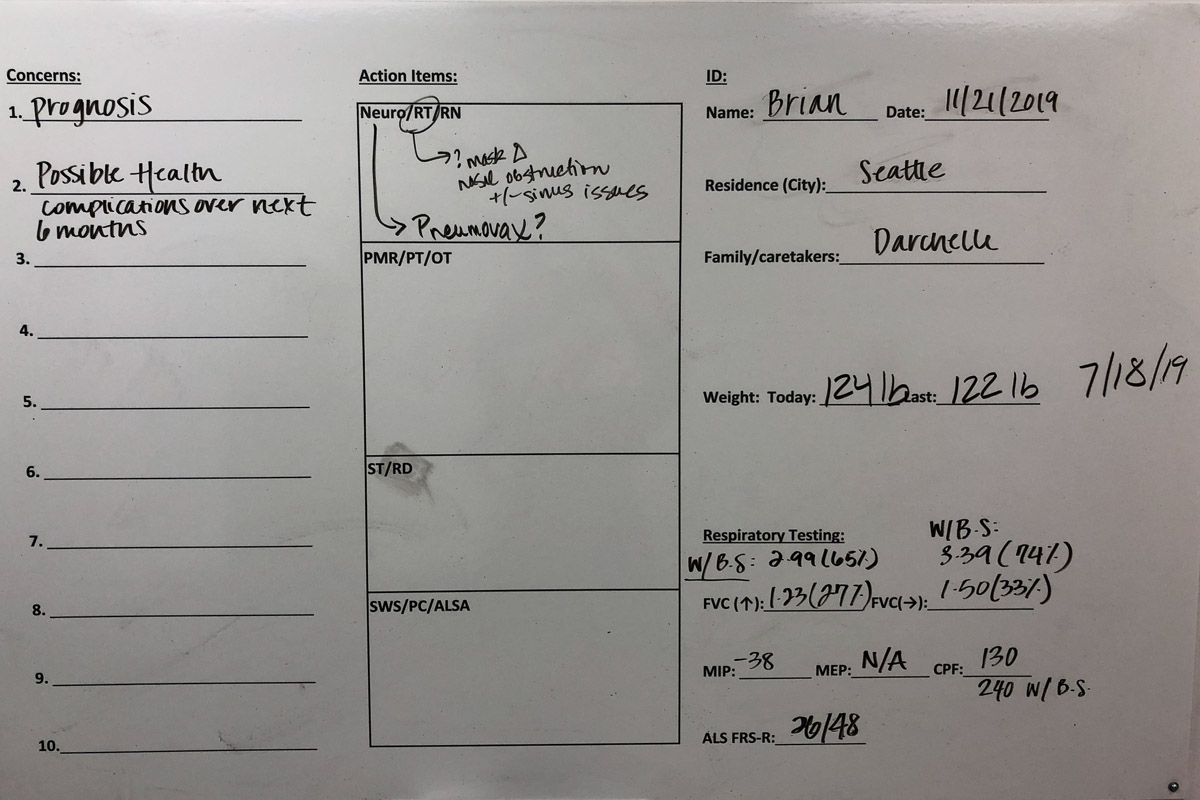 Concerns:
1. Prognosis
2. Possible Health
complications over next
6 months
3.
4.
5.
6.
7.
8.
9.
10.
Action Items:
Neuro/RT/RN
? mask Δ
nasal obstruction
+/- sinus issues
Pneumovax?
PMR/PT/OT
ST/RD
SWS/PC/ALSA
ID:
Name: Brian Date: 11/21/2019
Residence (City): Seattle
Family/caretakers: Darcnelle
Weight: Today: 124 lb Last: 122 lb 7/18/19
Respiratory Testing: W/B.S:
W/B.S: 2.99 (65%) 3.39 (74%)
FVC (↑): 1.23 (27%) FVC(→): 1.50 (33%)
MIP: -38 MEP: N/A CPF: 130
240 W/B.S.
ALS FRS-R: 26/48